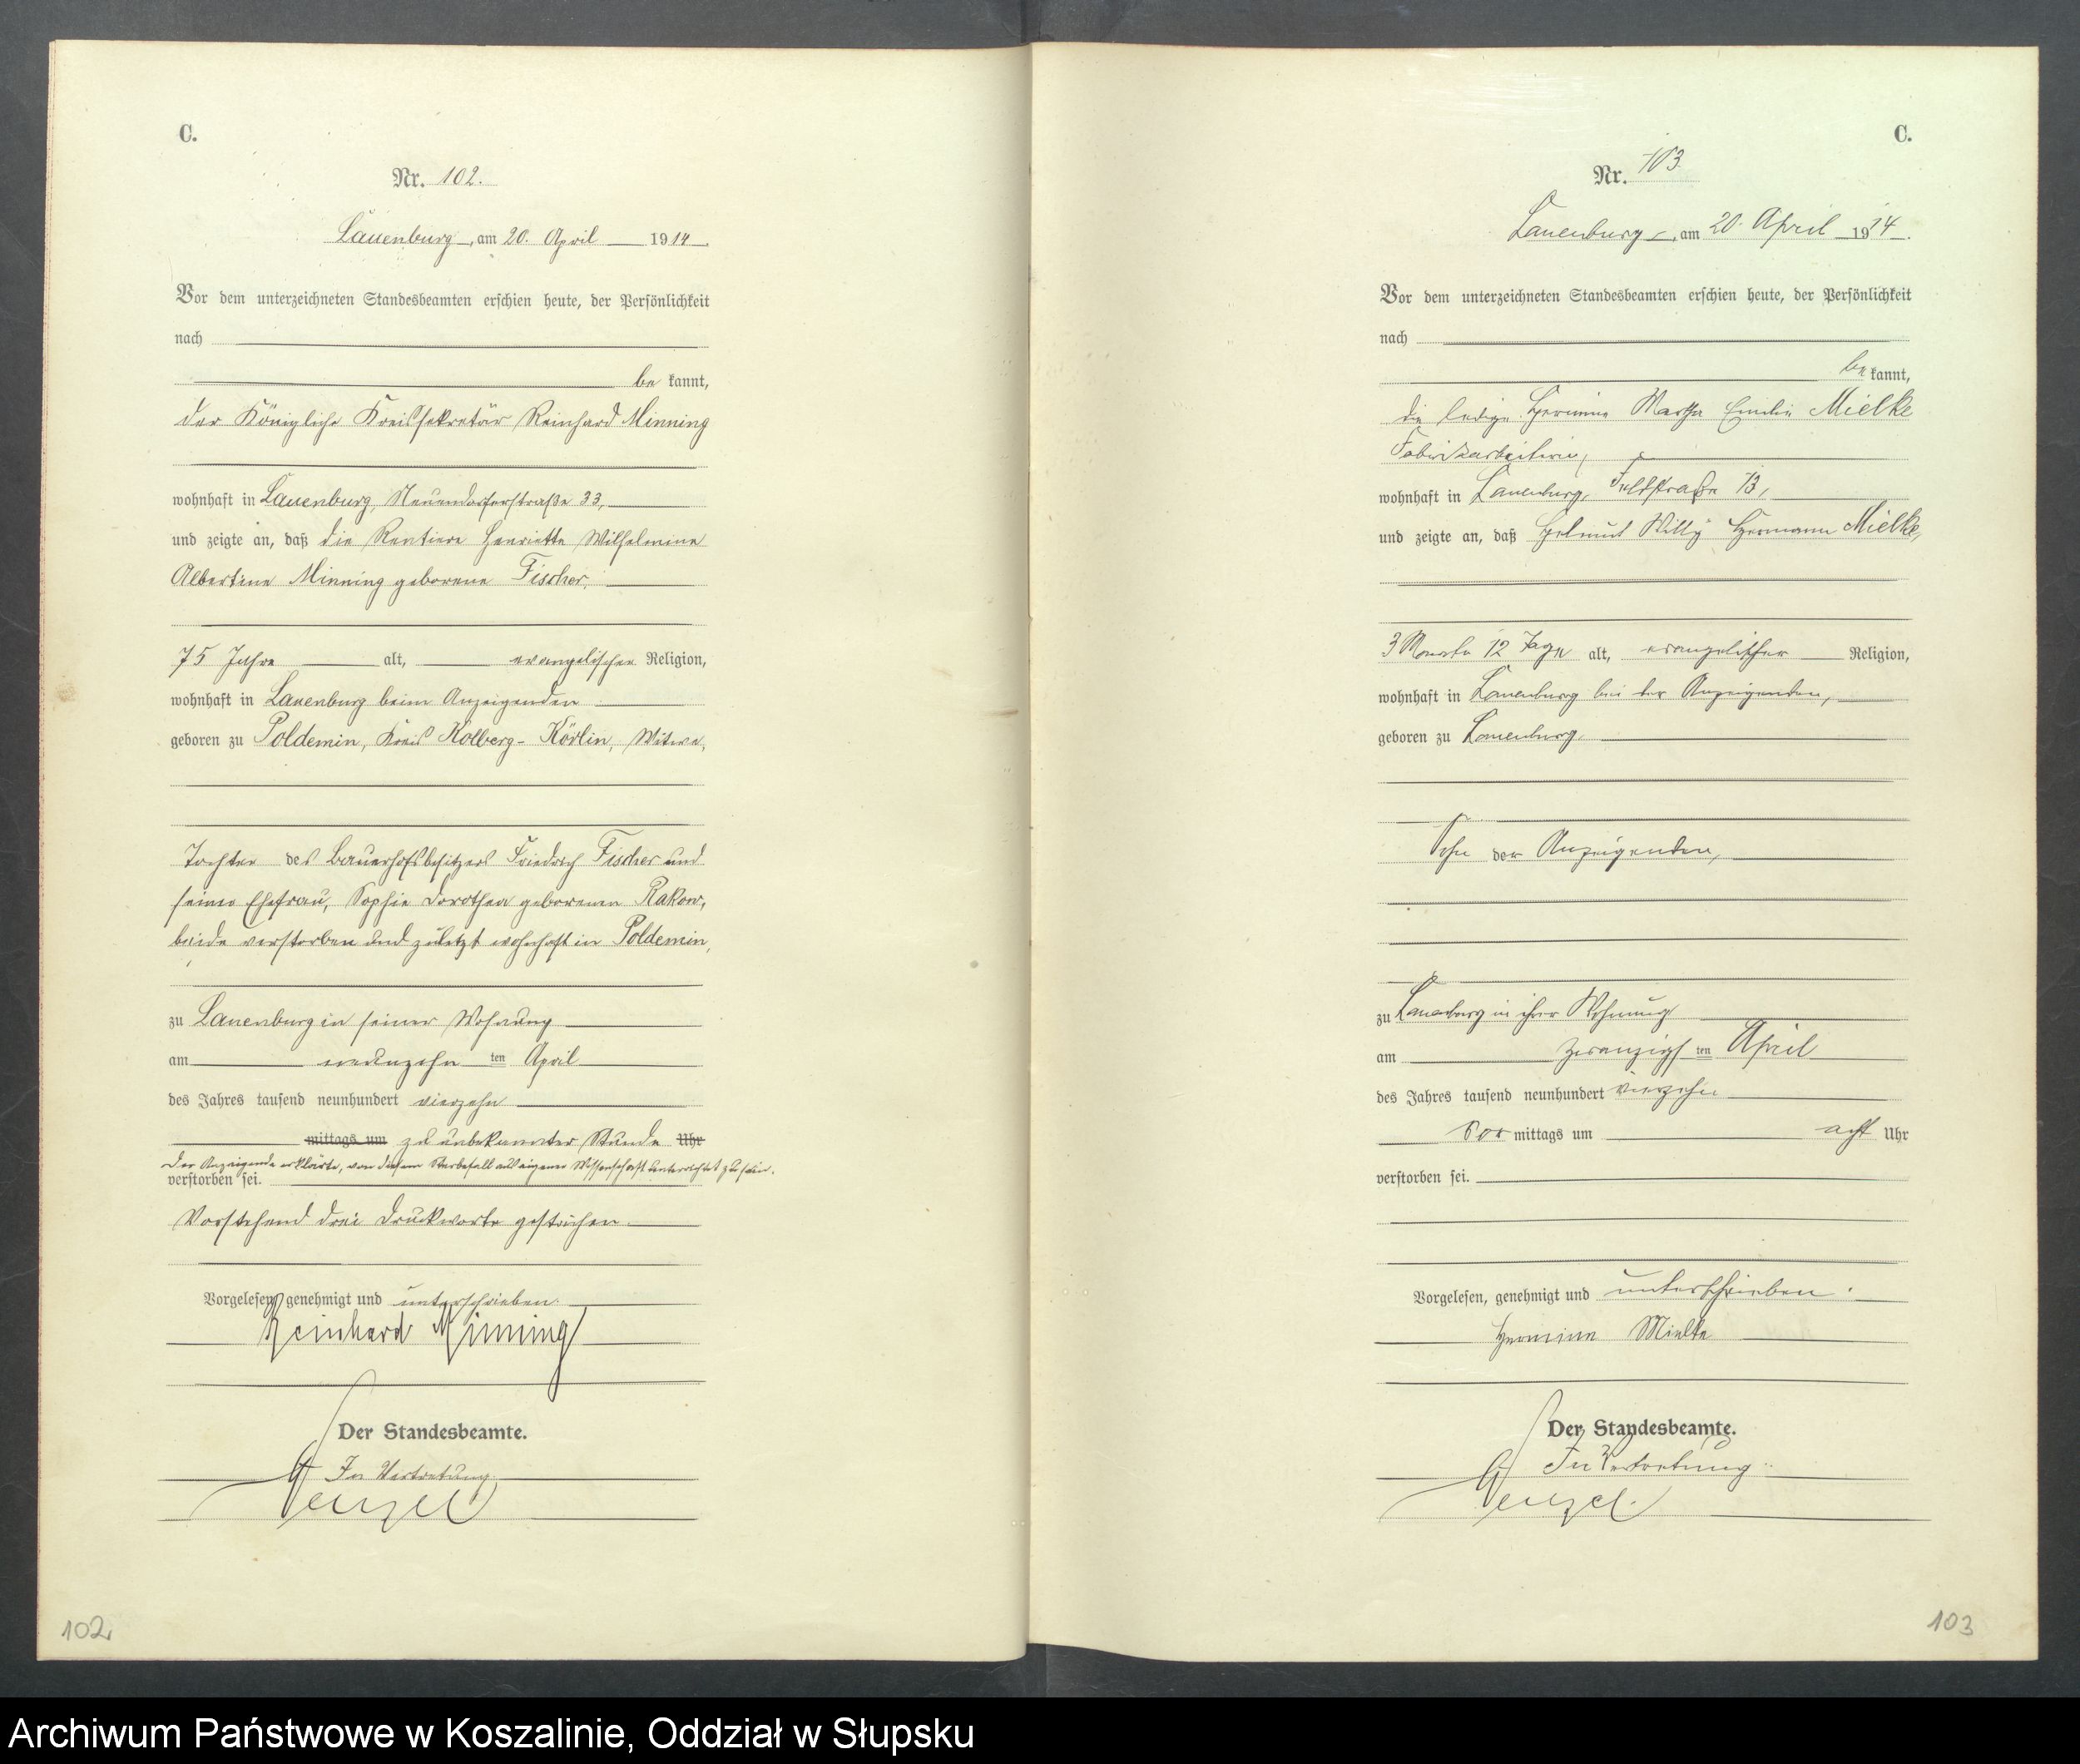 C.
Nr. 102.
Lauenburg, am 20. April 1914.
Vor dem unterzeichneten Standesbeamten erschien heute, der Persönlichkeit
nach
be kannt,
der Königliche Kreissekretär Reinhard Minning
wohnhaft in Lauenburg, Neuendorferstraße 33,
und zeigte an, daß die Rentiere Henriette Wilhelmine
Albertine Minning geborene Fischer,
75 Jahre alt, evangelischer Religion,
wohnhaft in Lauenburg beim Anzeigenden
geboren zu Poldemin, Kreis Kolberg-Körlin, Witwe,
Tochter des Bauerhofsbesitzers Friedrich Fischer und
seiner Ehefrau, Sophie Dorothea geborenen Rakow,
beide verstorben und zuletzt wohnhaft in Poldemin,
zu Lauenburg in seiner Wohnung
am neunzehn ten April
des Jahres tausend neunhundert vierzehn
mittags um zu unbekannter Stunde Uhr
Der Anzeigende erklärte, von diesem Sterbefall aus eigener Wissenschaft unterrichtet zu sein.
verstorben sei.
Vorstehend drei Druckworte gestrichen.
Vorgelesen, genehmigt und unterschrieben.
Reinhard Minning
Der Standesbeamte.
In Vertretung
Wenzel
102
C.
Nr. 103.
Lauenburg, am 20. April 1914.
Vor dem unterzeichneten Standesbeamten erschien heute, der Persönlichkeit
nach
be kannt,
die ledige Hermine Martha Emilie Mielke
Fabrikarbeiterin,
wohnhaft in Lauenburg, 13,
und zeigte an, daß Helmut Willy Hermann Mielke,
3 Monate 12 Tage alt, evangelischer Religion,
wohnhaft in Lauenburg bei der Anzeigenden,
geboren zu Lauenburg,
Sohn der Anzeigenden,
zu Lauenburg in ihrer Wohnung
am zwanzigs ten April
des Jahres tausend neunhundert vierzehn
Vor mittags um acht Uhr
verstorben sei.
Vorgelesen, genehmigt und unterschrieben.
Hermine Mielke
Der Standesbeamte.
In Vertretung.
Wenzel.
103
Archiwum Państwowe w Koszalinie, Oddział w Słupsku